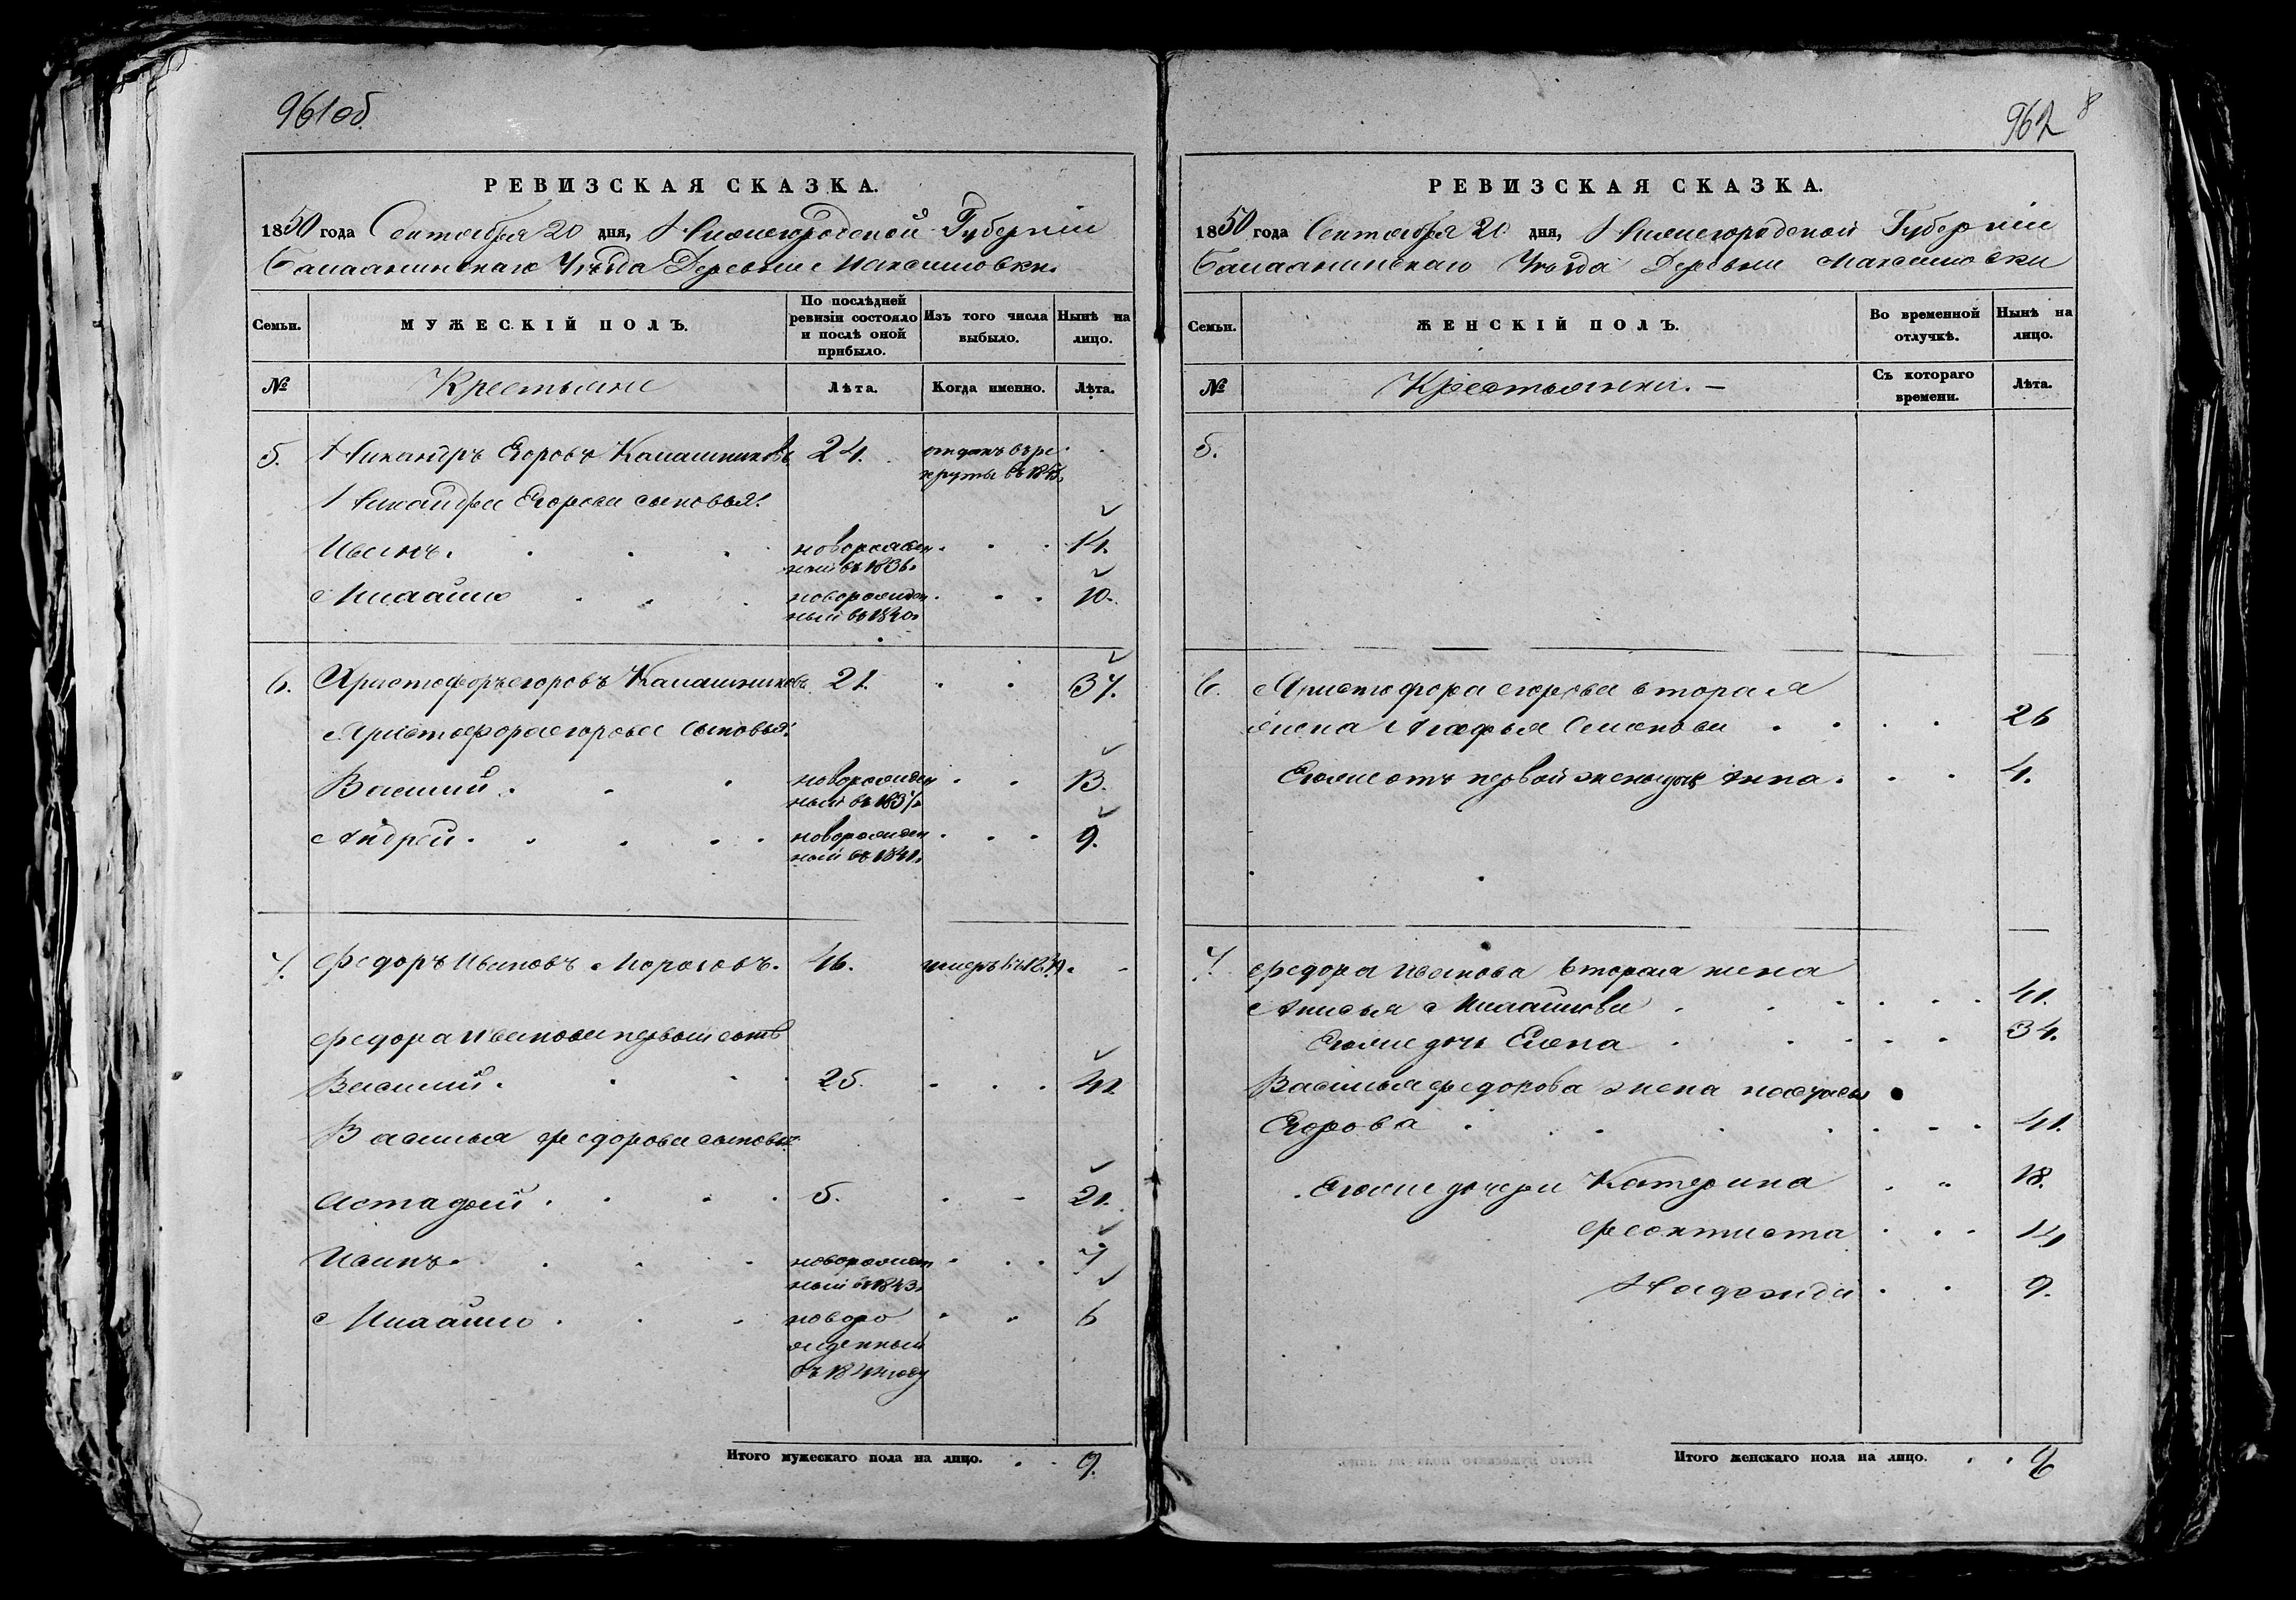 961об
РЕВИЗСКАЯ СКАЗКА.
1850 года Сентября 20 дня, Нижегородской Губерніи
Балахнинскаго Уѣзда Деревни Максимовки
Семьи.
МУЖЕСКІЙ ПОЛЪ.
По послѣдней ревизіи состояло и послѣ оной прибыло.
Изъ того числа выбыло.
Нынѣ на лицо.
№
Крестьяне
Лѣта.
Когда именно.
Лѣта.
5. Никандръ Егоровъ Калашниковъ 24. отданъ въ ре
круты въ 1845
Никандра Егорова сыновья:
Иванъ. новорожден 14.
ный въ 1836.
Михайло новорожден 10.
ный въ 1840.
6. Христофоръ Егоровъ Калашниковъ 21. 37.
Христофора Егорова сыновья:
Василій. новорожден 13.
ный въ 1837.
Андрей. новорожден 9.
ный въ 1841.
7. Федоръ Ивановъ Морозовъ. 46. умеръ въ
Федора Иванова первый сынъ
Василий. 25. 41.
Василья Федорова сыновья:
Астафей 5. 21.
Иванъ. новорожден 7
ный въ 1843.
Михайло новоро 6
жденный
въ 1844 году
Итого мужескаго пола на лицо. 9.
962 8
РЕВИЗСКАЯ СКАЗКА.
1850 года Сентября 20 дня, Нижегородской Губерніи
Балахнинскаго Уѣзда Деревни Максимовки
Семьи.
ЖЕНСКІЙ ПОЛЪ.
Во временной отлучкѣ.
Нынѣ на лицо.
№
Крестьянки.
Съ котораго времени.
Лѣта.
5.
6. Христофора Егорова вторая
жена Агафья Семенова 26
Егоже отъ первой жены дочь Анна. 4.
7. Федора Иванова вторая жена
Анисья Михайлова 41.
Егоже дочь Елена 34.
Василья Федорова жена Настасья
Егорова 41.
Егоже дочери Катерина 18.
Феоктиста 14
Надежда 9.
Итого женскаго пола на лицо.